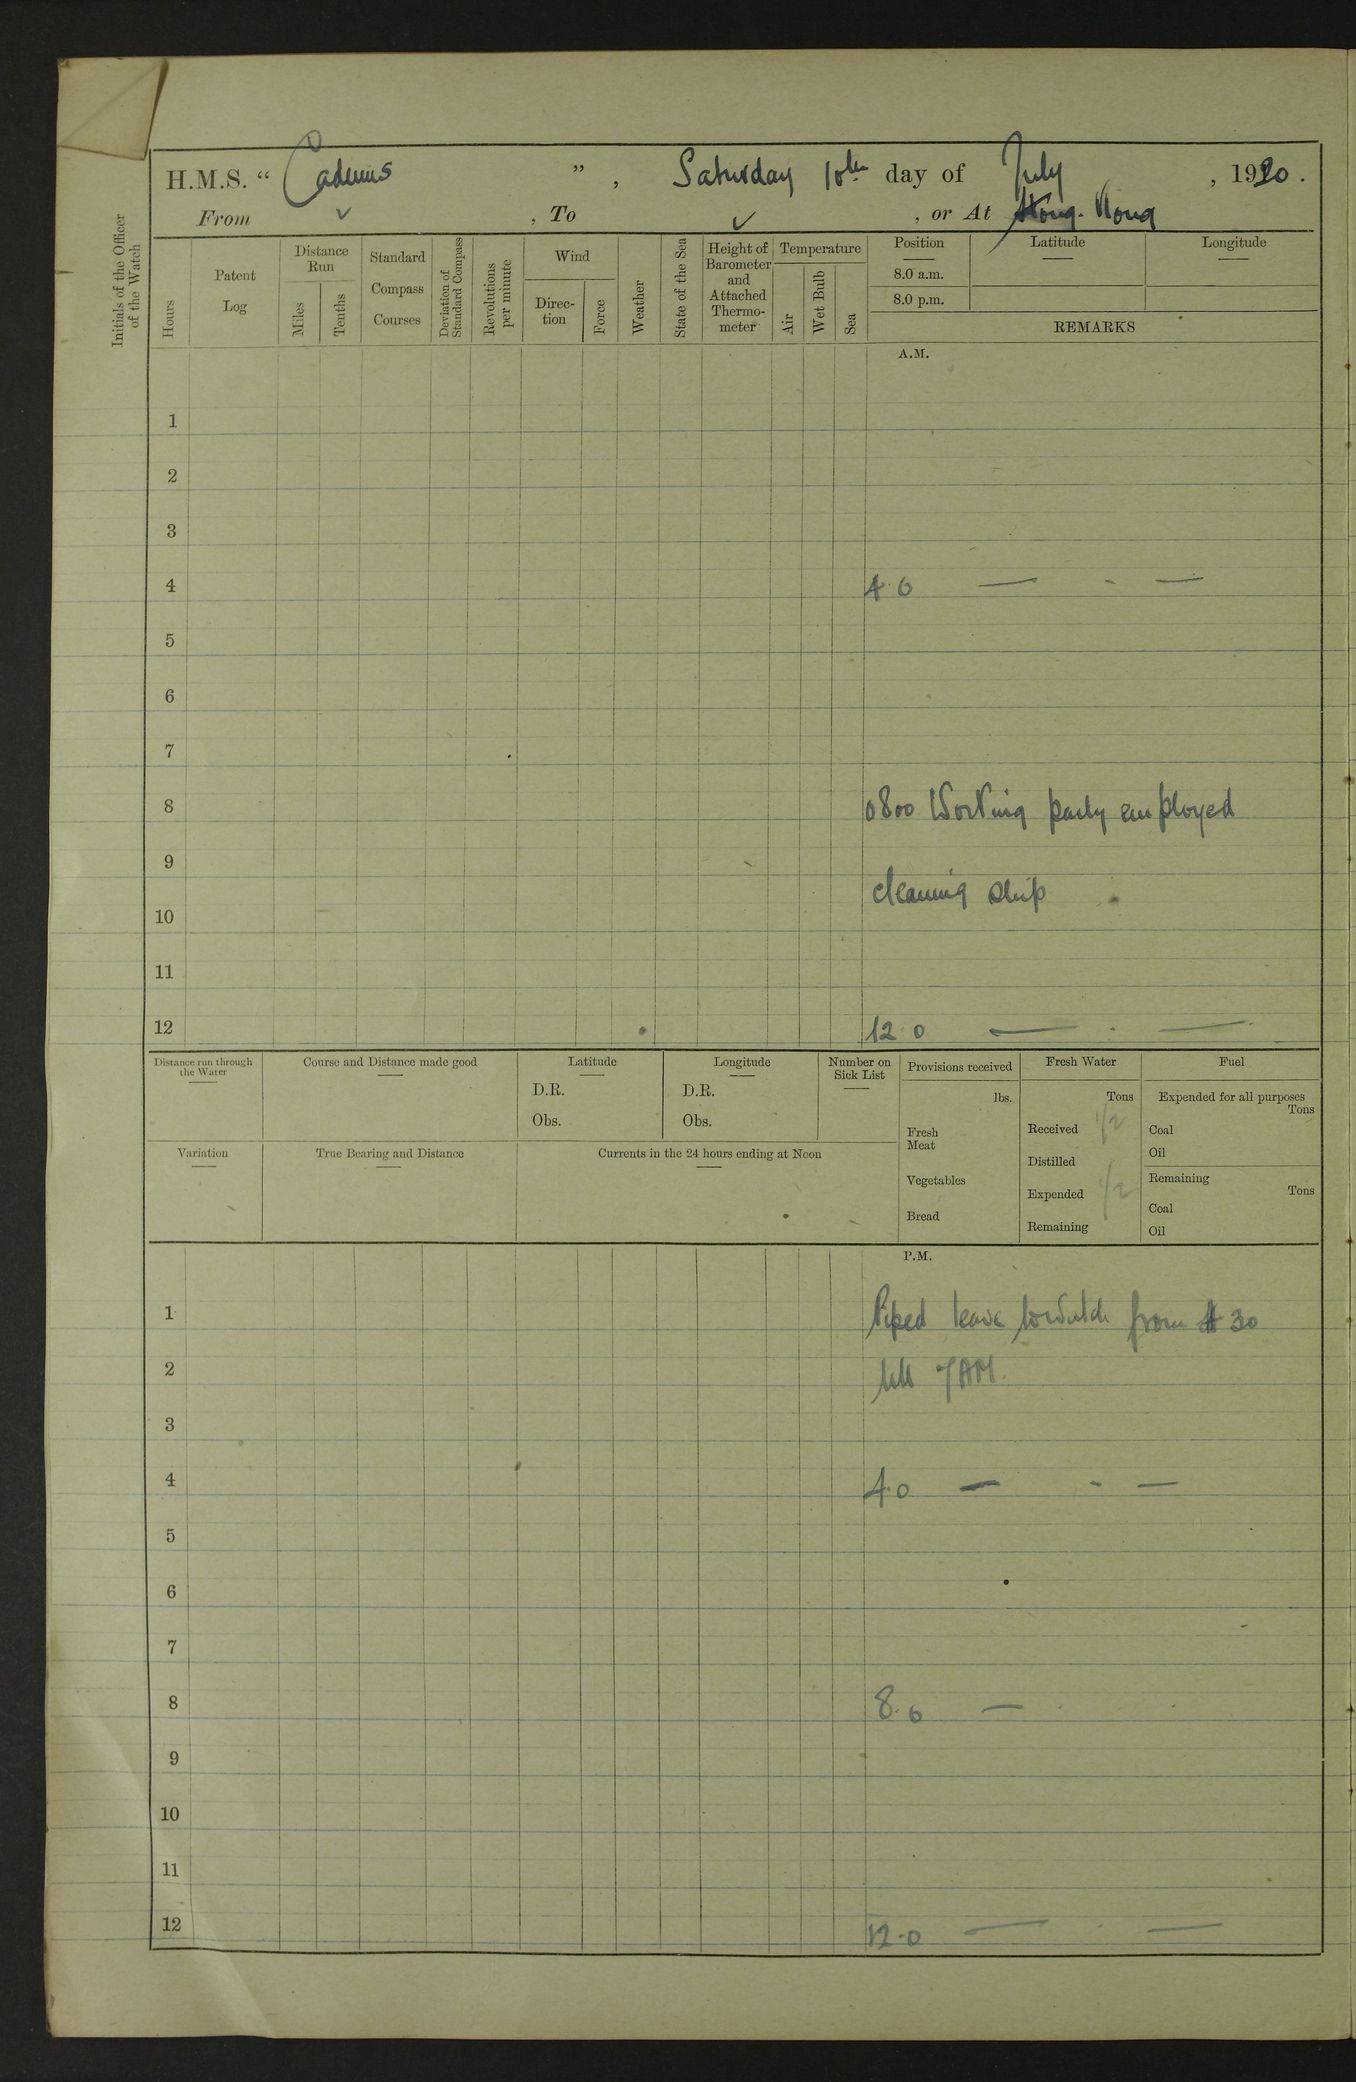 H.M.S. “ Cadmus ” , Saturday 10th day of July , 1920 .
From ✓ , To ✓ , or At Hong Kong
Initials of the Officer
of the Watch
Hours
Patent
Log
Distance
Run
Miles
Tenths
Standard
Compass
Courses
Deviation of
Standard Compass
Revolutions
per minute
Wind
Direc-
tion
Force
Weather
State of the Sea
Height of
Barometer
and
Attached
Thermo-
meter
Temperature
Air
Wet Bulb
Sea
Position
Latitude
Longitude
8.0 a.m.
8.0 p.m.
REMARKS
A.M.
1
2
3
4 4.0 — - —
5
6
7
8 0800 Working party employed
9
cleaning ship
10
11
12 12 0 — . —
Distance run through
the Water
Course and Distance made good
Latitude
D.R.
Obs.
Longitude
D.R.
Obs.
Number on
Sick List
Provisions received
lbs.
Fresh
Meat
Vegetables
Bread
Fresh Water
Tons
Received 1/2
Distilled
Expended 1/2
Remaining
Fuel
Expended for all purposes
Tons
Coal
Oil
Remaining
Tons
Coal
Oil
Variation
True Bearing and Distance
Currents in the 24 hours ending at Noon
P.M.
1 Piped leave to watch from 30
2 till 7 AM.
3
4 4.0 — - —
5
6
7
8 8.0 —
9
10
11
12 12.0 — . —